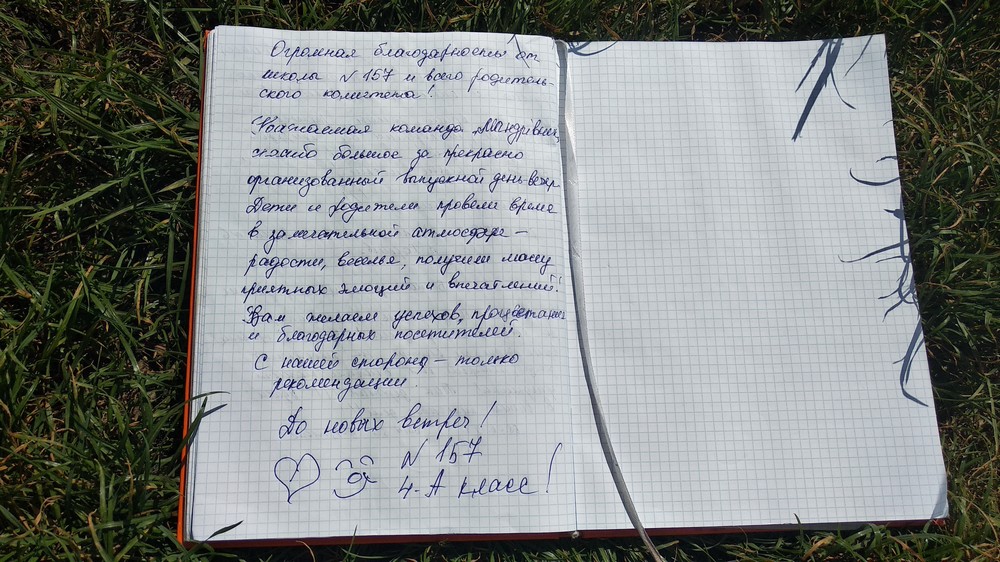 Огромная благодарность от
школы N 157 и всего родитель-
ского комитета!
Уважаемая команда „Мандрівник"
спасибо большое за прекрасно
организованный выпускной день-вечер
Дети и родители провели время
в замечательной атмосфере –
радости, веселья, получили массу
приятных эмоций и впечатлений!
Вам желаем успехов, процветания
и благодарных посетителей.
С нашей стороны – только
рекомендации.
До новых встреч!
N 157
4-А класс!